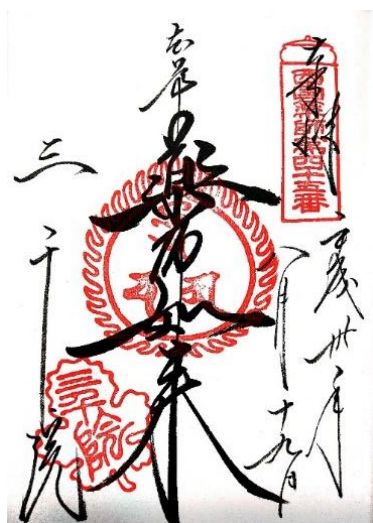 奉拝
西國薬師第四十五番
平成卅年
八月十九日
本尊
薬師如来
三千院
三千院